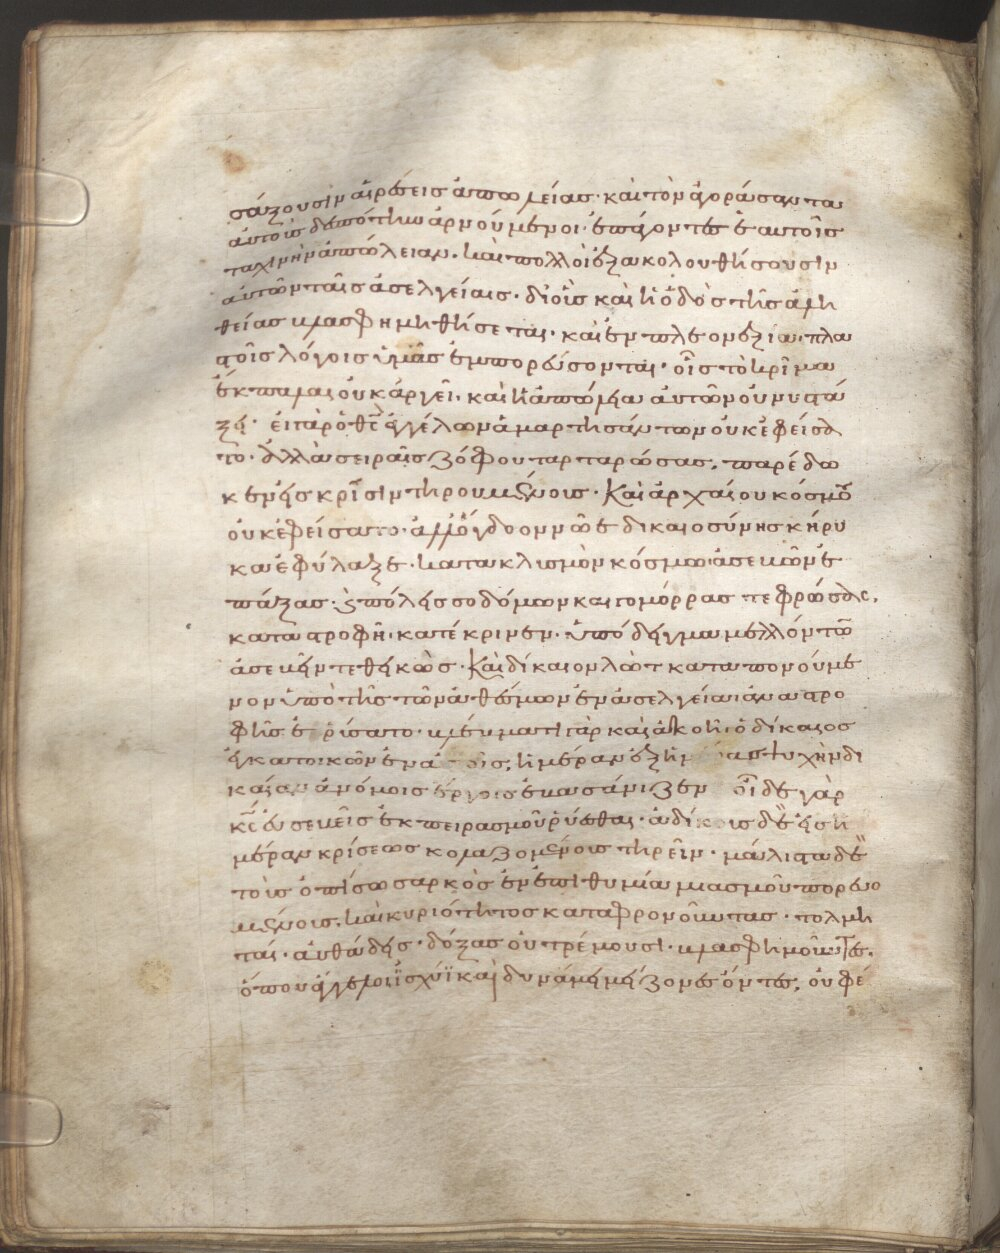 σάξουσιν αἱρέσεις ἀπωλείας· καὶ τὸν ἀγοράσαντα
αὐτοὺς δεσπότην ἀρνούμενοι· ἐπάγοντες ἑαυτοῖς
ταχινὴν ἀπώλειαν. καὶ πολλοὶ ἐξακολουθήσουσιν
αὐτῶν ταῖς ἀσελγείαις· δι' οἷς καὶ ἡ ὁδὸς τῆς ἀλη
θείας βλασφημηθήσεται· καὶ ἐν πλεονεξία· πλα
στοῖς λόγοις ὑμᾶς ἐμπορεύσονται· οἷς τὸ κρῖμα
ἔκπαλαι οὐκ ἀργεῖ· καὶ ἡ ἀπώλεια αὐτῶν οὐ νυστά
ξει· εἰ γὰρ ὁ θς ἀγγέλων ἁμαρτησάντων οὐκ ἐφείσα
το· ἀλλὰ σειραῖς ζόφου ταρταρώσας, παρέδω
κεν εἰς κρίσιν τηρουμένοις· Καὶ ἀρχαίου κόσμου
οὐκ ἐφείσατο· ἀλλ' ὄγδοον νῶε δικαιοσύνης κήρυ
κα ἐφύλαξε· κατακλισμὸν κόσμω ἀσεβῶν ἐ
πάξας· καὶ πόλεις σοδόμων καὶ γομόρρας τεφρώσας,
καταστροφῇ· κατέκρινεν· ὑπόδειγμα μελλόντων
ἀσεβεῖν τεθεικὼς· Καὶ δίκαιον λὼτ καταπονούμε
νον ὑπὸ τῆς τῶν ἀθέσμων ἐν ἀσελγεία ἀναστρο
φῆς ἐρρίσατο· βλέμματι γὰρ καὶ ἀκοῆ ὁ δίκαιος
ἐγκατοικῶν ἐν αὐτοῖς, ἡμέραν ἐξ ἡμέρας ψυχὴν δι
καίαν ἀνόμοις ἔργοις ἐβασάνιζεν οἶδε γὰρ
κς εὐσεβεῖς ἐκ πειρασμοῦ ῥύεσθαι· ἀδίκοις δὲ εἰς ἡ
μέραν κρίσεως κολαζομένοις τηρεῖν· μάλιστα δὲ
τοὺς ὀπίσω σαρκὸς ἐν ἐπιθυμία μιασμοῦ πορευο
μένοις, καὶ κυριότητος καταφρονοῦντας· τολμη
ταί· αὐθάδεις· δόξας οὐ τρέμουσι· βλασφημοῦντες,
ὅπου ἄγγελοι ἰσχύϊ καὶ δυνάμει μείζονες ὄντες, οὐ φέ